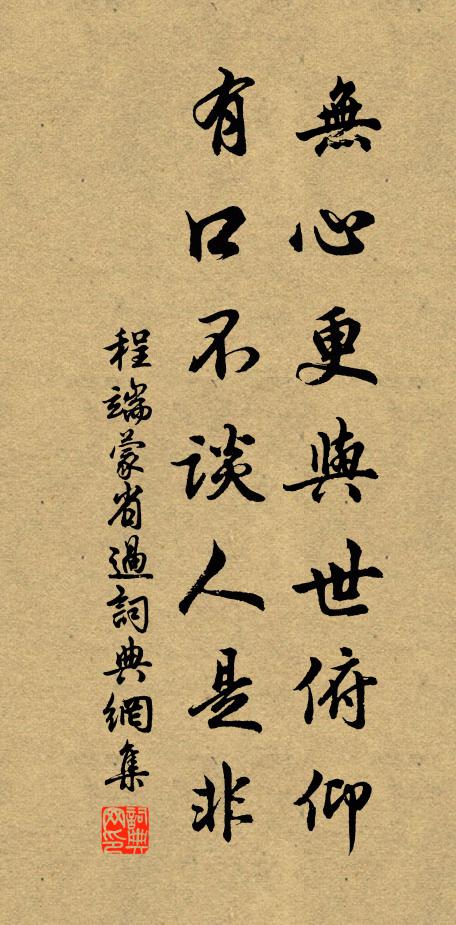 無心更與世俯仰
有口不談人是非
程端蒙省過詞典網集
詞典網印